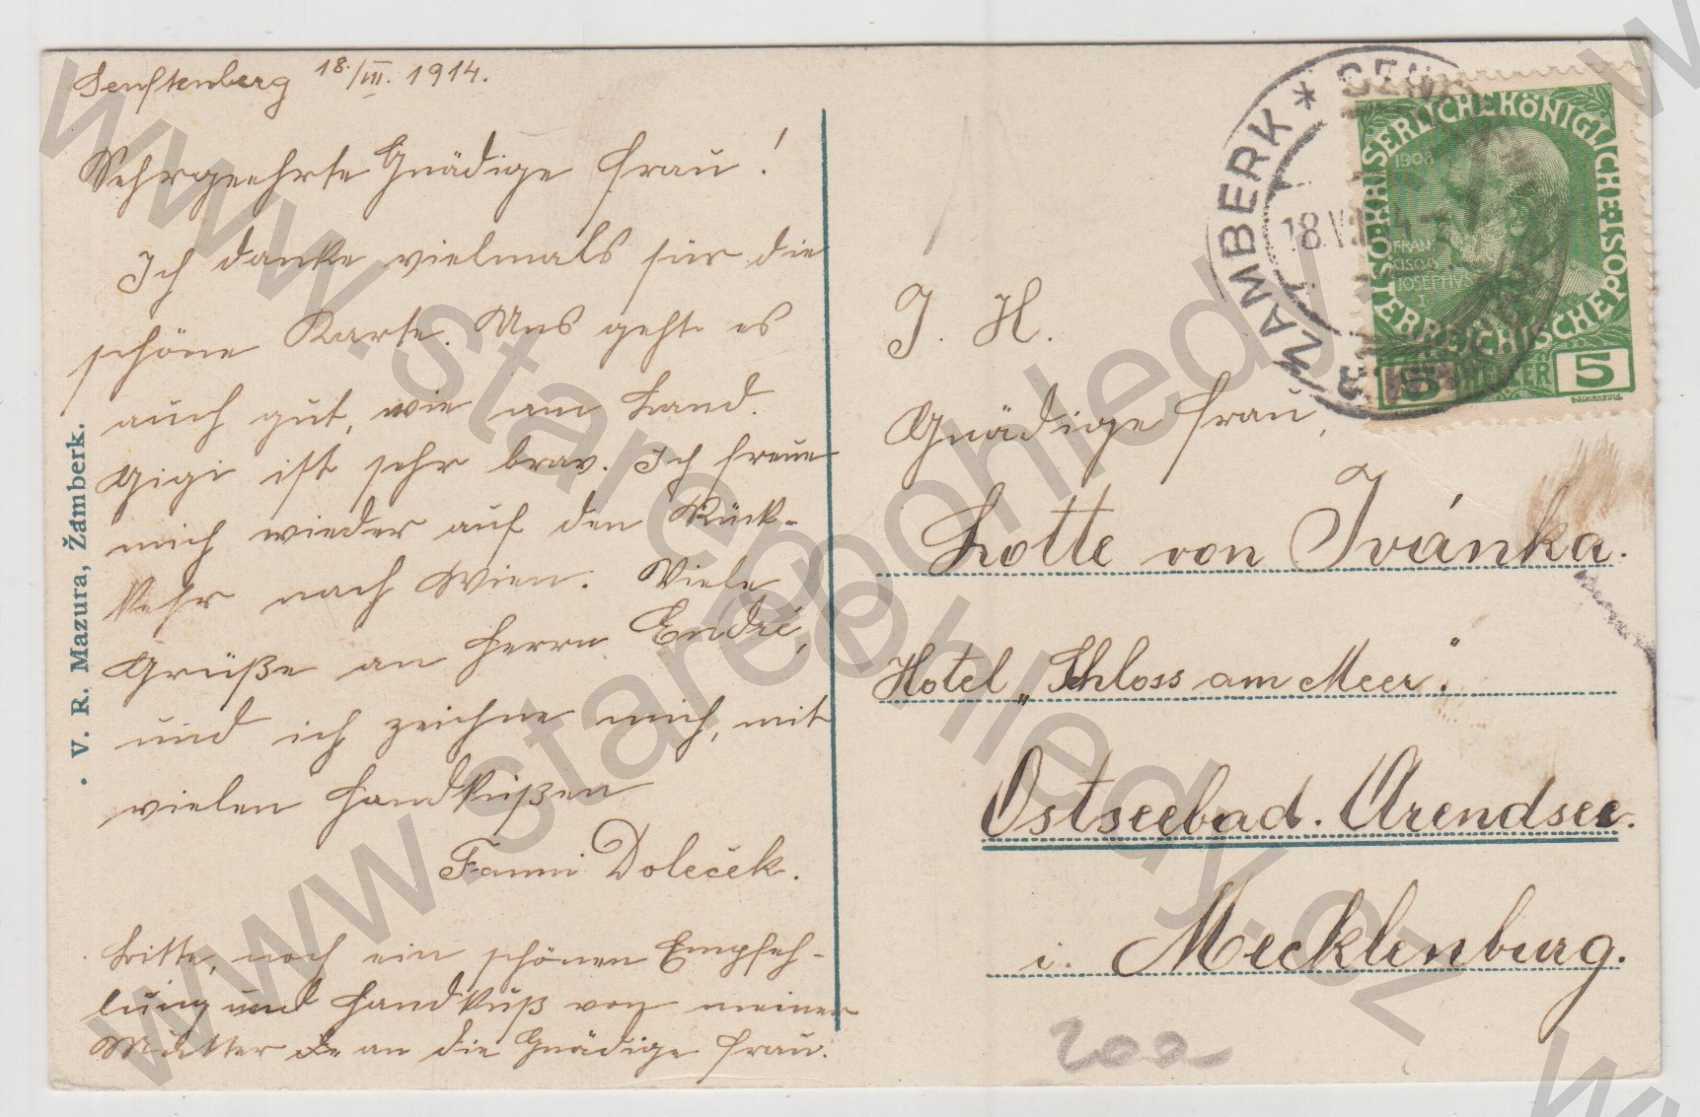 Senftenberg 18./VII. 1914.
Sehrgeehrte Gnädige Frau!
Ich danke vielmals für die
schöne Karte. Uns geht es
auch gut, wie am Land.
Gigi ist sehr brav. Ich freue
mich wieder auf den Rück-
kehr nach Wien. Viele
Grüße an Herrn Endré,
und ich zeichne mich, mit
vielen Handküßen
Fanni Doleček.
Bitte, noch ein schönen Empfeh-
lung und Handkuß von meiner
Mutter an die Gnädige Frau.
• V. R. Mazura, Žamberk.
I. H.
Gnädige Frau,
Lotte von Ivánka.
Hotel „Schloss am Meer".
Ostseebad. Arendsee.
i. Mecklenburg.
200
ŽAMBERK *
18.VII
KAISERLICHE KÖNIGLICHE
ÖSTERREICHISCHE POST
1908
FRAN
CISCVS
IOSEPHVS
I
5 HELLER 5
www.starepohledy.cz
www.starepohledy.cz